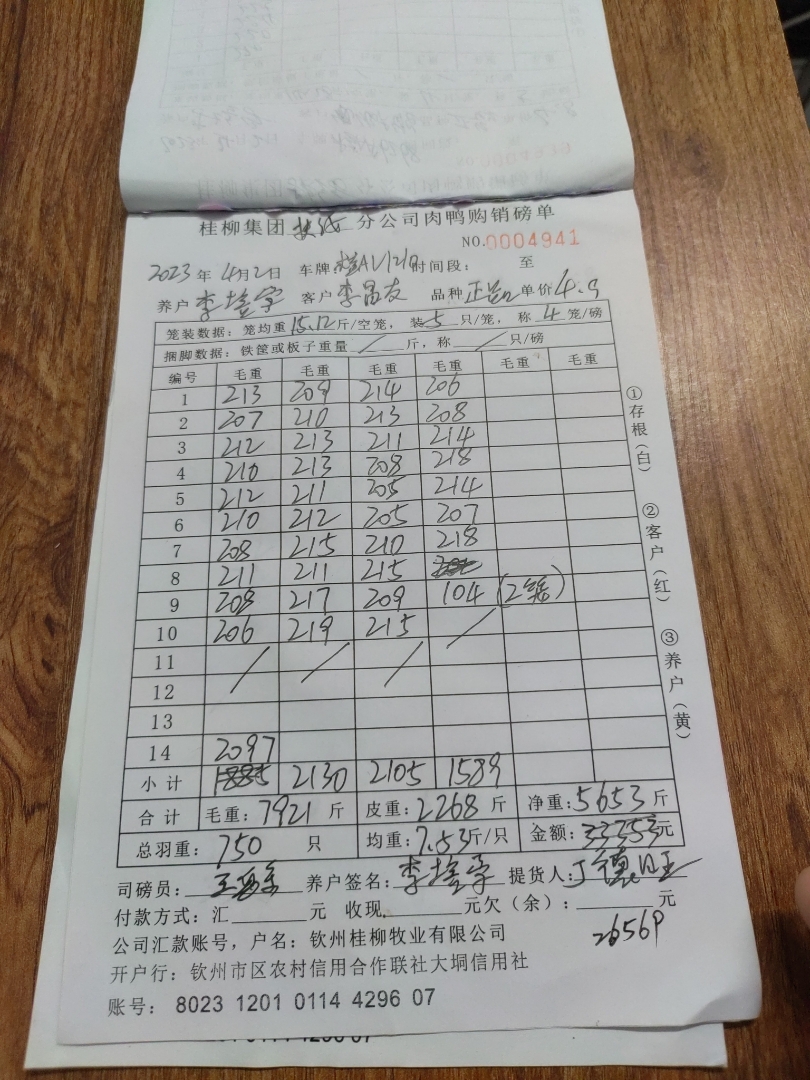 桂柳集团 扶绥 分公司肉鸭购销磅单
NO.0004941
2023 年 4月2日 车牌: 时间段: 至
养户 李 客户 李昌友 品种 单价 4.9
笼装数据: 笼均重 15.12 斤/空笼, 装 5 只/笼, 称 4 笼/磅
捆脚数据: 铁筐或板子重量 / 斤, 称 / 只/磅
编号 毛重 毛重 毛重 毛重 毛重 毛重
1 213 209 214 206
2 207 210 213 208
3 212 213 211 214
4 210 213 208 218
5 212 211 205 214
6 210 212 205 207
7 208 215 210 218
8 211 211 215
9 208 217 209 104 (2笼)
10 206 219 215 /
11 / / /
12
13
14 2097
小计 1885 2130 2105 1589
合计 毛重: 7921 斤 皮重: 2268 斤 净重: 5653 斤
总羽重: 750 只 均重: 7.53 斤/只 金额: 元
司磅员: 养户签名: 李 提货人:
付款方式: 汇 元 收现 元欠(余): 元
公司汇款账号, 户名: 钦州桂柳牧业有限公司
开户行: 钦州市区农村信用合作联社大垌信用社
账号: 8023 1201 0114 4296 07
①存根(白)
②客户(红)
③养户(黄)